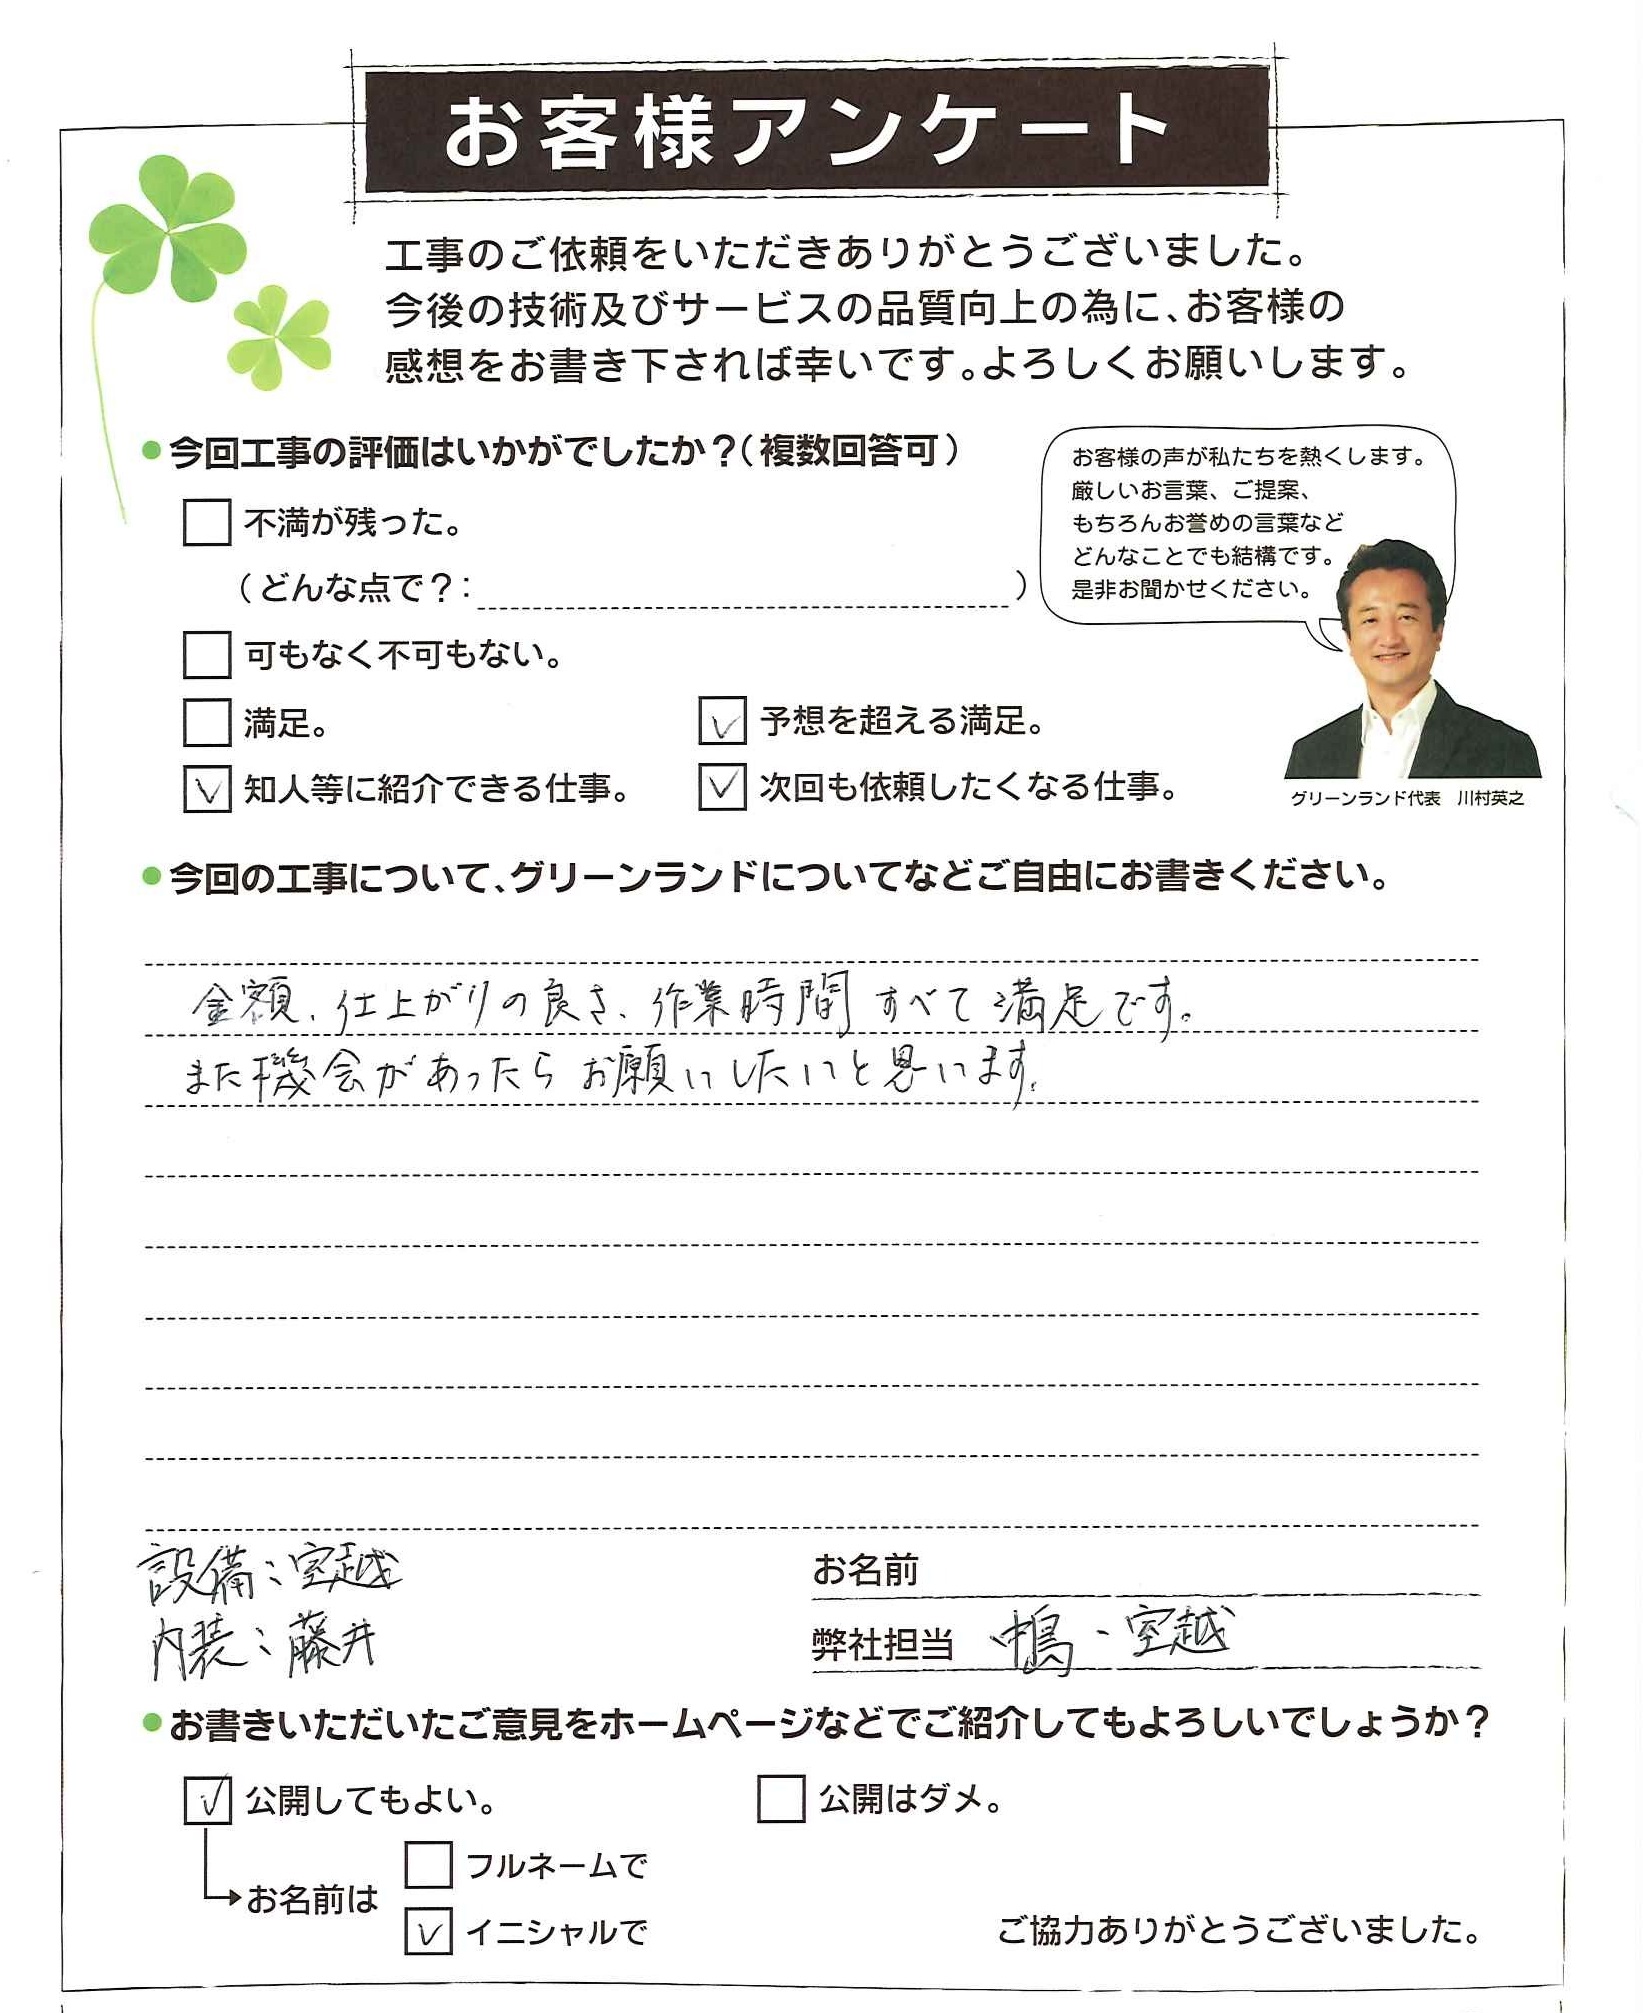 お客様アンケート
工事のご依頼をいただきありがとうございました。
今後の技術及びサービスの品質向上の為に、お客様の
感想をお書き下されば幸いです。よろしくお願いします。
●今回工事の評価はいかがでしたか?(複数回答可)
不満が残った。
(どんな点で?: )
可もなく不可もない。
満足。
予想を超える満足。
知人等に紹介できる仕事。
次回も依頼したくなる仕事。
お客様の声が私たちを熱くします。
厳しいお言葉、ご提案、
もちろんお誉めの言葉など
どんなことでも結構です。
是非お聞かせください。
グリーンランド代表 川村英之
●今回の工事について、グリーンランドについてなどご自由にお書きください。
金額、仕上がりの良さ、作業時間すべて満足です。
また機会があったらお願いしたいと思います。
設備:室越
内装:藤井
お名前
弊社担当 ・室越
●お書きいただいたご意見をホームページなどでご紹介してもよろしいでしょうか?
公開してもよい。
公開はダメ。
お名前は
フルネームで
イニシャルで
ご協力ありがとうございました。